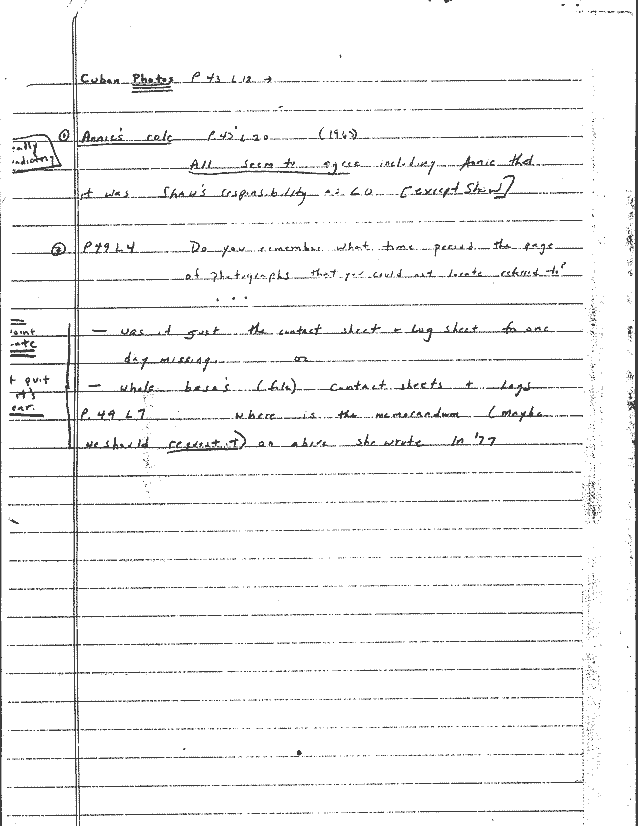 Cuban Photos P 43 L 12 →
① Annie's role P 45 L 20 (1963)
All seem to agree including Annie that
it was Shaw's responsibility as CO [except Shaw]
② P 49 L 4 Do you remember what time period the page
of photographs that you could not locate referred to?
...
— was it just the contact sheet + log sheet for one
day missing or
— whole base's (file) contact sheets + logs
P. 49 L 7 where is the memorandum (maybe
we should request it) on above she wrote in '77
ually
t quit